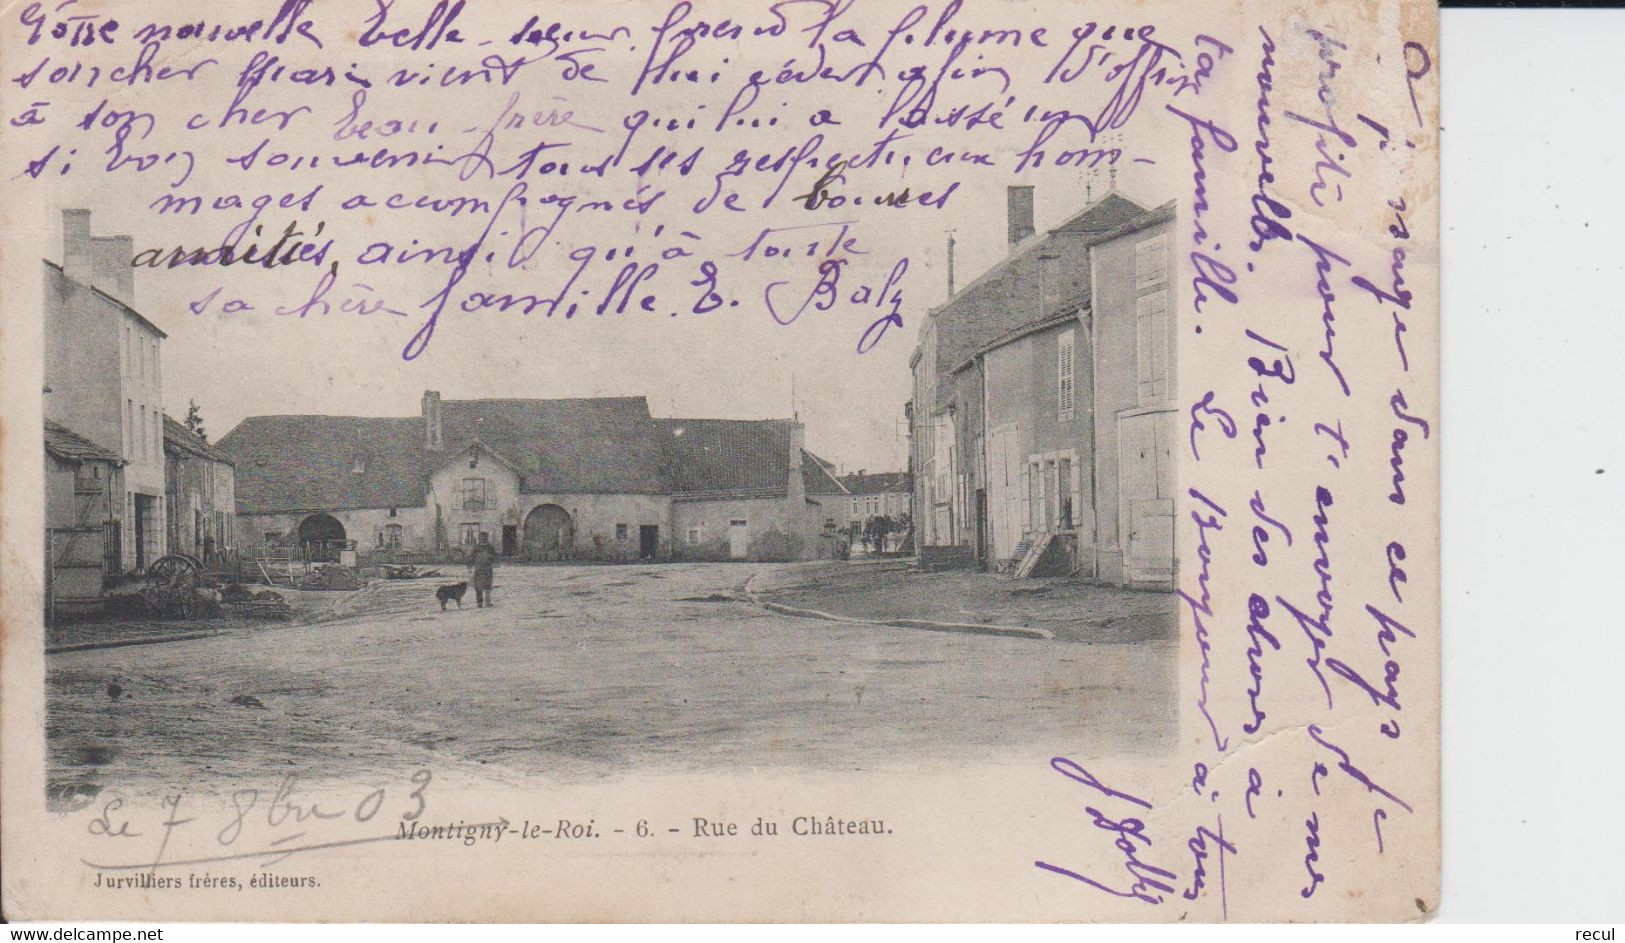 Votre nouvelle belle-sœur prend la plume que
son cher mari vient de lui céder afin d'offrir
à son cher beau-frère qui lui a laissé un
si bon souvenir tous ses respectueux hom-
mages accompagnés de bonnes
amitiés, ainsi qu'à toute
sa chère famille. E. Baly
voyage dans ce pays je
profite pour t'envoyer de mes
nouvelles. Bien des choses à
ta famille. Le Bonjour à tous
Le 7 8bre 03
Montigny-le-Roi. - 6. - Rue du Château.
Jurvilliers frères, éditeurs.
recul
www.delcampe.net